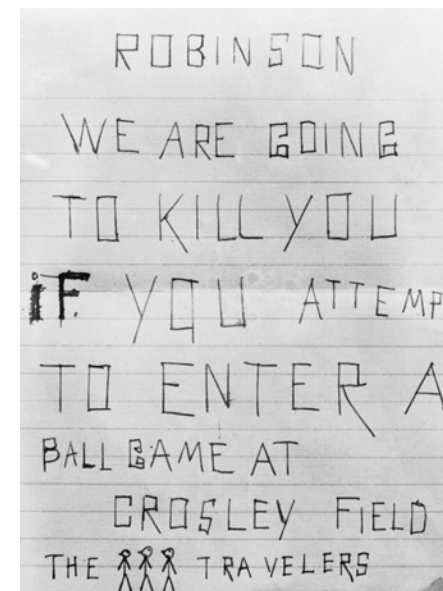 ROBINSON
WE ARE GOING
TO KILL YOU
iF YOU ATTEMP
TO ENTER A
BALL GAME AT
CROSLEY FIELD
THE TRAVELERS